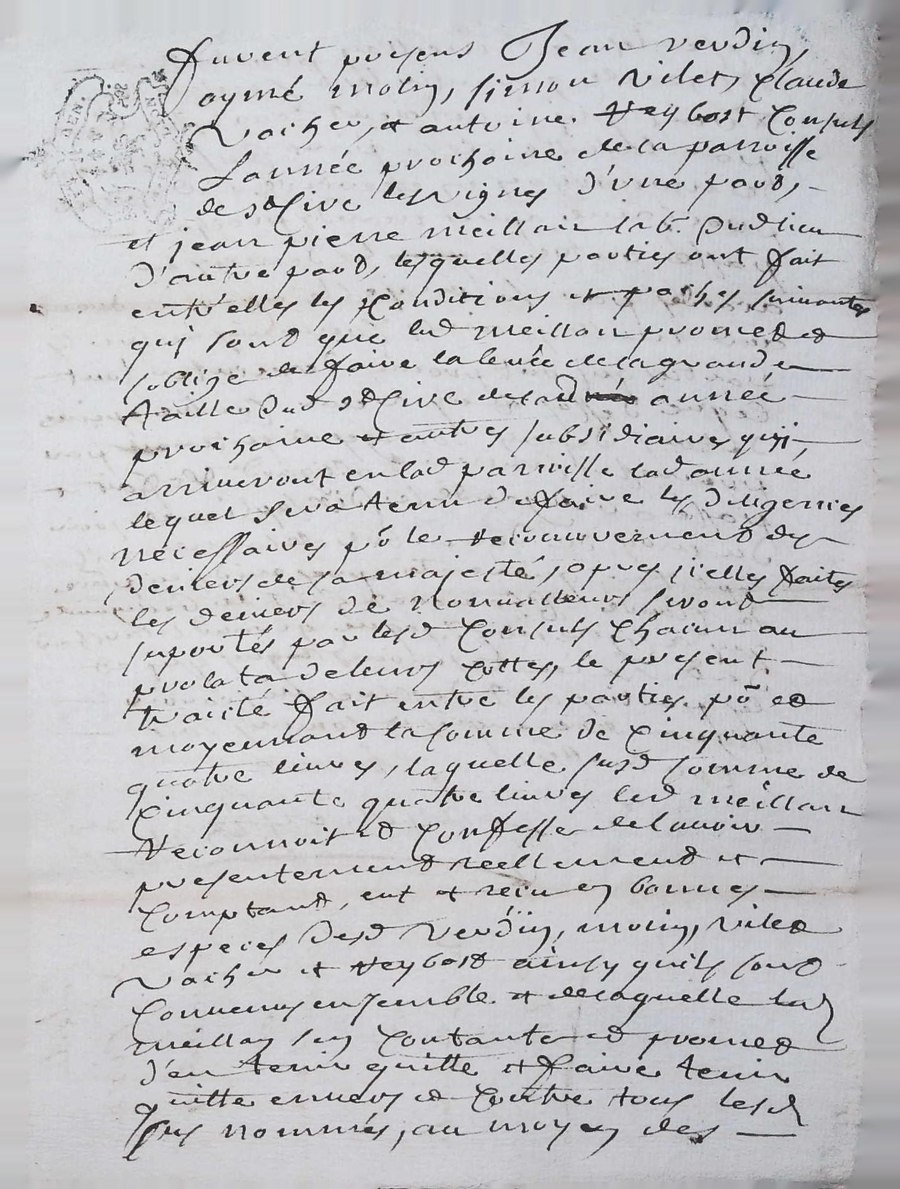 furent presens Jean verdin,
aymé molin, simon vilet, Claude
vacher, et antoine Reybost Consuls
Lannée prochaine de la parroisse
de st Cire les vignes d'une part,
et jean pierre meillan lab. dud lieu
d'autre part, lesquelles parties ont fait
entr'elles les Conditions et paches suivantes
qui sont que led meillan promet et
soblige de faire la levée de la grande
taille dud st Cire de lad année
prochaine et autres subsidiaires qui
arriveront en lad parroisse lad année,
lequel sera tenu de faire les diligences
necessaires po le recouvrement des
deniers de sa majesté, icelles faites
les deniers de seront
suportés par lesd Consuls chacun au
prolata de leurs Cottes, le present
traicté fait entre les parties po et
moyennant la somme de Cinquante
quatre livres, laquelle susd somme de
Cinquante quatre livres led meillan
reconnoit et Confesse de lavoir
presentement reellement et
Comptant, eut et receu en bonnes
especes desd Verdin, molin, vilet
vacher et Reybost ainsy quils sont
Convenus ensemble et de laquelle led
meillan sen Contante et promet
d'en tenir quitte et faire tenir
quitte envers et Contre tous lesd
sus nommés, au moyen des